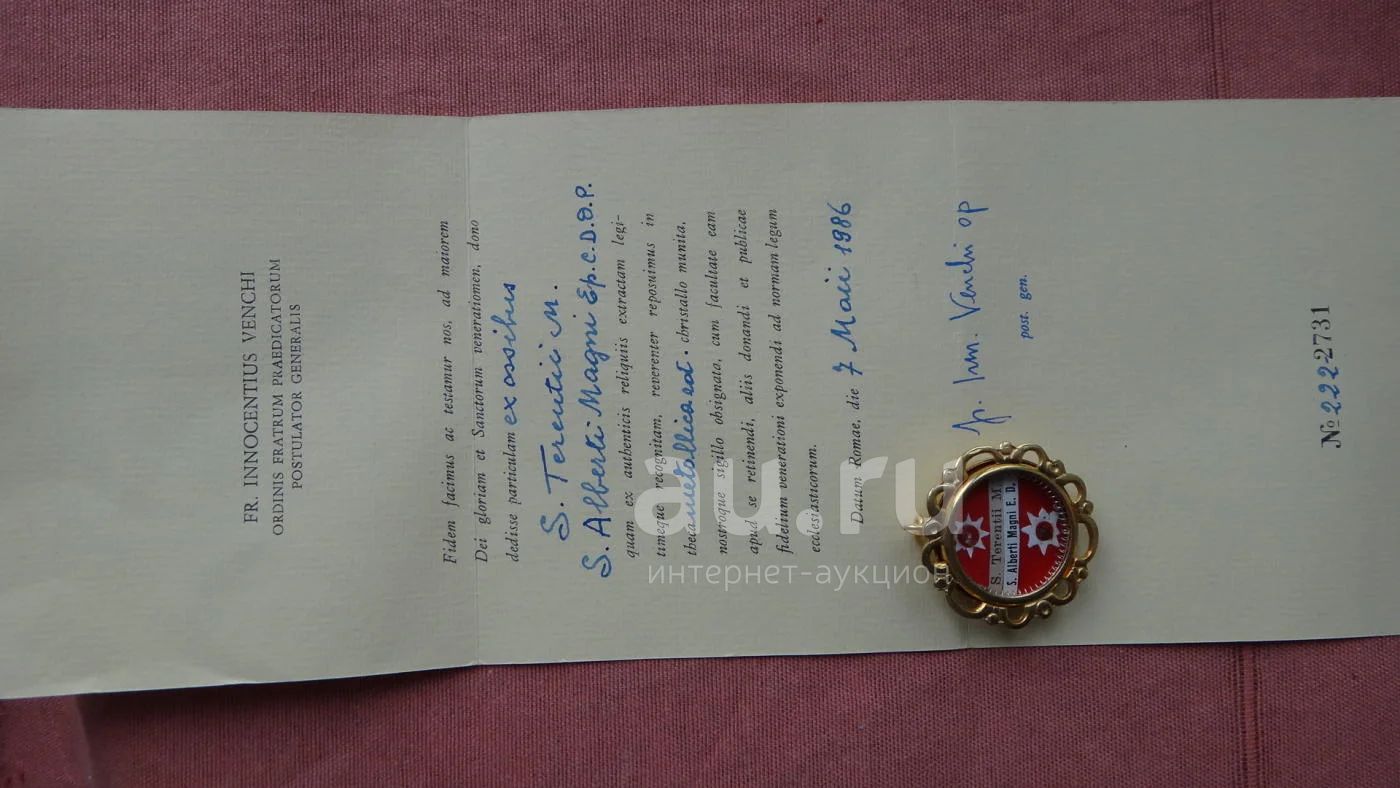 FR. INNOCENTIUS VENCHI
ORDINIS FRATRUM PRAEDICATORUM
POSTULATOR GENERALIS
Fidem facimus ac testamur nos, ad maiorem
Dei gloriam et Sanctorum venerationem, dono
dedisse particulam ex ossibus
S. Terentii M.
S. Alberti Magni Ep.C.D.O.P.
quam ex authenticis reliquiis extractam legi-
timeque recognitam, reverenter reposuimus in
theca metallica rot. christallo munita,
nostroque sigillo obsignata, cum facultate eam
apud se retinendi, aliis donandi et publicae
fidelium venerationi exponendi ad normam legum
ecclesiasticorum.
Datum Romae, die 7 Maii 1986
fr. Inn. Venchi op
post. gen.
S. Terentii M
S. Alberti Magni E. D.
№ 222731
au.ru
интернет-аукцион